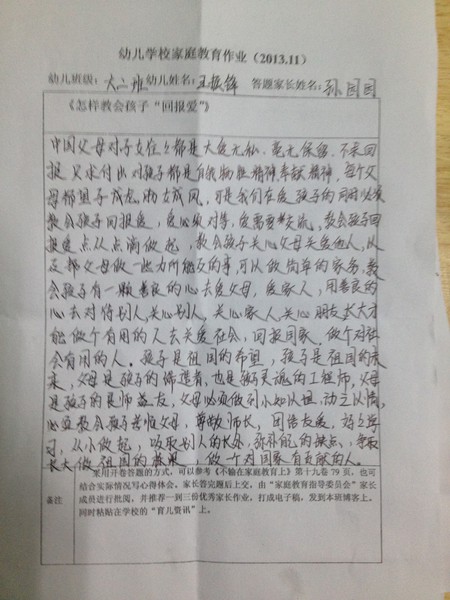 幼儿学校家庭教育作业（2013.11）
幼儿班级：大二班 幼儿姓名：王振锋 答题家长姓名：孙园园
《怎样教会孩子“回报爱”》
中国父母对子女往往都是大爱无私、毫无保留、不求回
报、只求付出对孩子都是有我物胜精神奉献精神，每个父
母都望子成龙，盼女成凤，可是我们在爱孩子的同时必须
教会孩子回报爱，爱必须对等，爱需要交流，教会孩子回
报爱点从点滴做起，教会孩子关心父母关爱他人，以
及帮父母做一些力所能及的事，可以做简单的家务，教
会孩子有一颗善良的心去爱父母，爱家人，用善良的
心去对待别人关心别人，关心家人，关心朋友，长大才
能做个有用的人去关爱社会，回报国家，做个对社
会有用的人。孩子是祖国的希望，孩子是祖国的未
来，父母是孩子的缔造者，也是孩子灵魂的工程师，父母
是孩子的良师益友，父母必须做到小如以恒，动之以情，
必须教会孩子孝惟父母，尊敬师长，团结友爱，好好学
习，从小做起，吸取别人的长处，弥补自己的缺点，争取
长大做祖国的栋梁，做一个对国家有贡献的人。
备注
采用开卷答题的方式，可以参考《不输在家庭教育上》第十九卷 79 页，也可
结合实际情况写心得体会，家长答完题后上交，由“家庭教育指导委员会”家长
成员进行批阅，并推荐一到三份优秀家长作业，打成电子稿，发到本班博客上。
同时粘贴在学校的“育儿资讯”上。